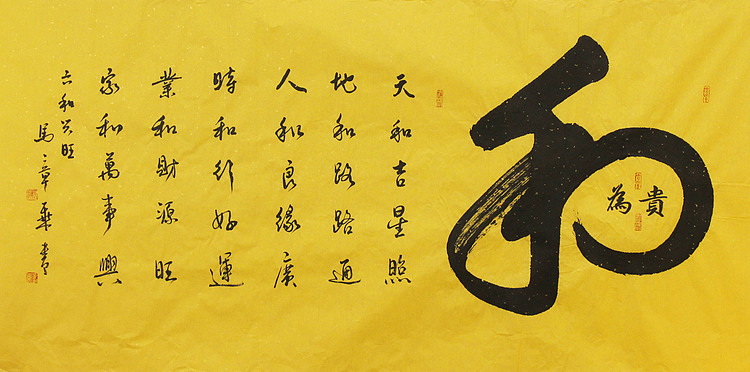 和
為貴
天和吉星照
地和路路通
人和良緣廣
時和行好運
業和財源旺
家和萬事興
六和兴旺
馬 章 書